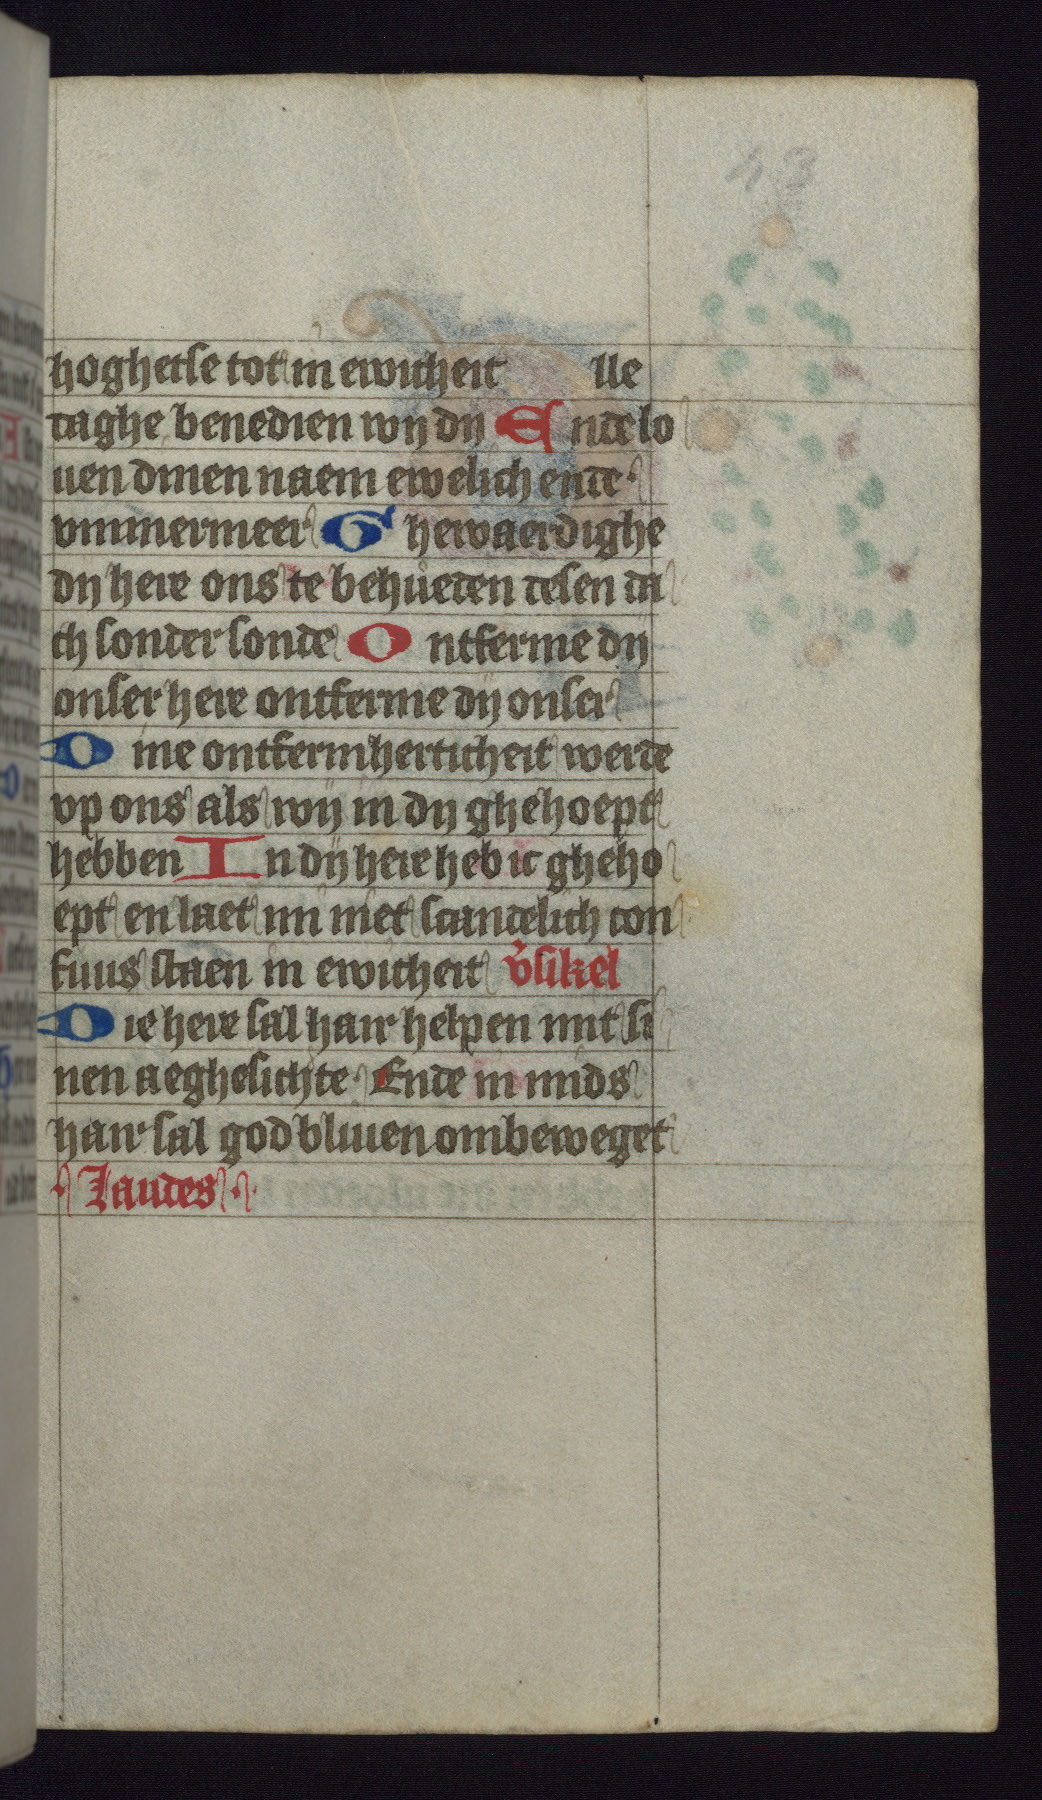 43
hoghetse tot in ewicheit lle
daghe benedien wij dij Ende lo
uen dinen naem ewelich ende
ummermeer Ghewaerdighe
dij here ons te behueden desen da
ch sonder sonde Ontferme dij
onser here ontferme dij onser
Dine ontfermherticheit werde
vp ons als wij in dij ghehoept
hebben In dij here heb ic gheho
ept en laet mi niet scandelich con
fuus staen in ewicheit v̄sikel
Die here sal hair helpen mit si
nen aeghesichte Ende in mids
hair sal god bliuen ombeweget
Laudes